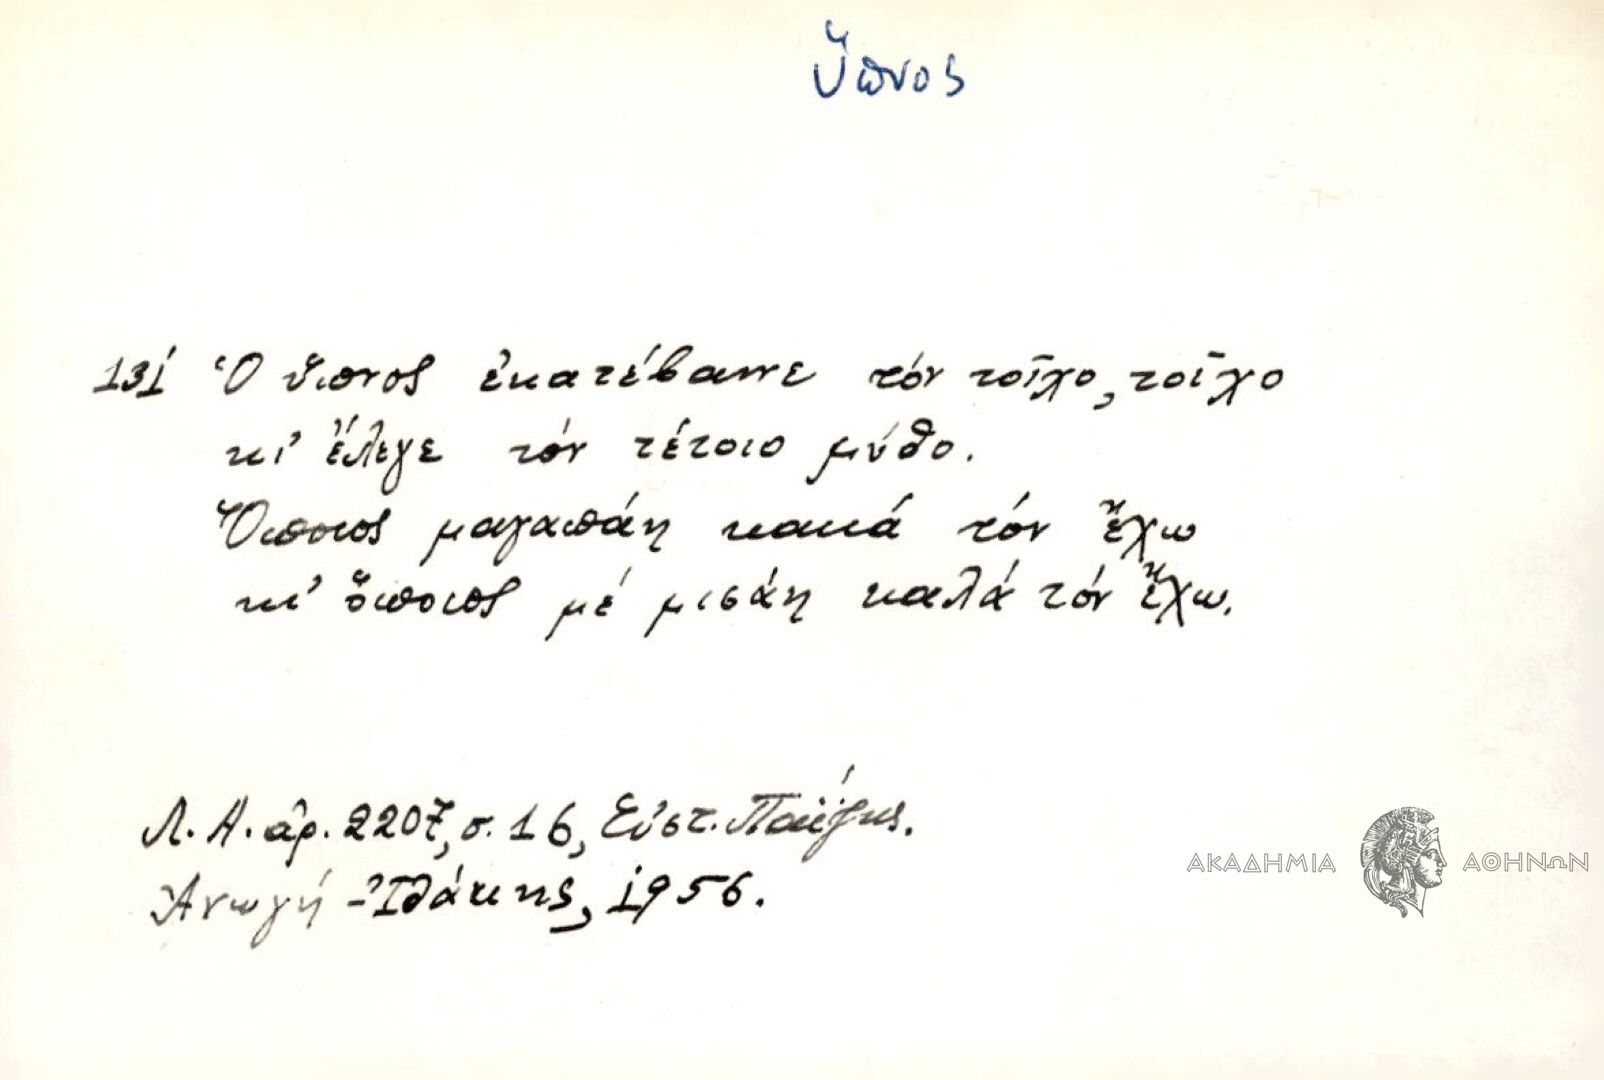 Ὕπνος
131 Ὁ ὕπνος ἐκατέβαινε τόν τοῖχο, τοῖχο
κι' ἔλεγε τόν τέτοιο μύθο.
Ὅποιος μαγαπάη κακά τόν ἔχω
κι' ὅποιος μέ μισάη καλά τόν ἔχω.
Λ. Α. ἀρ. 2207, σ. 16, Εὐστ.
Ἀνωγή - Ἰθάκης, 1956.
ΑΚΑΔΗΜΙΑ ΑΘΗΝΩΝ